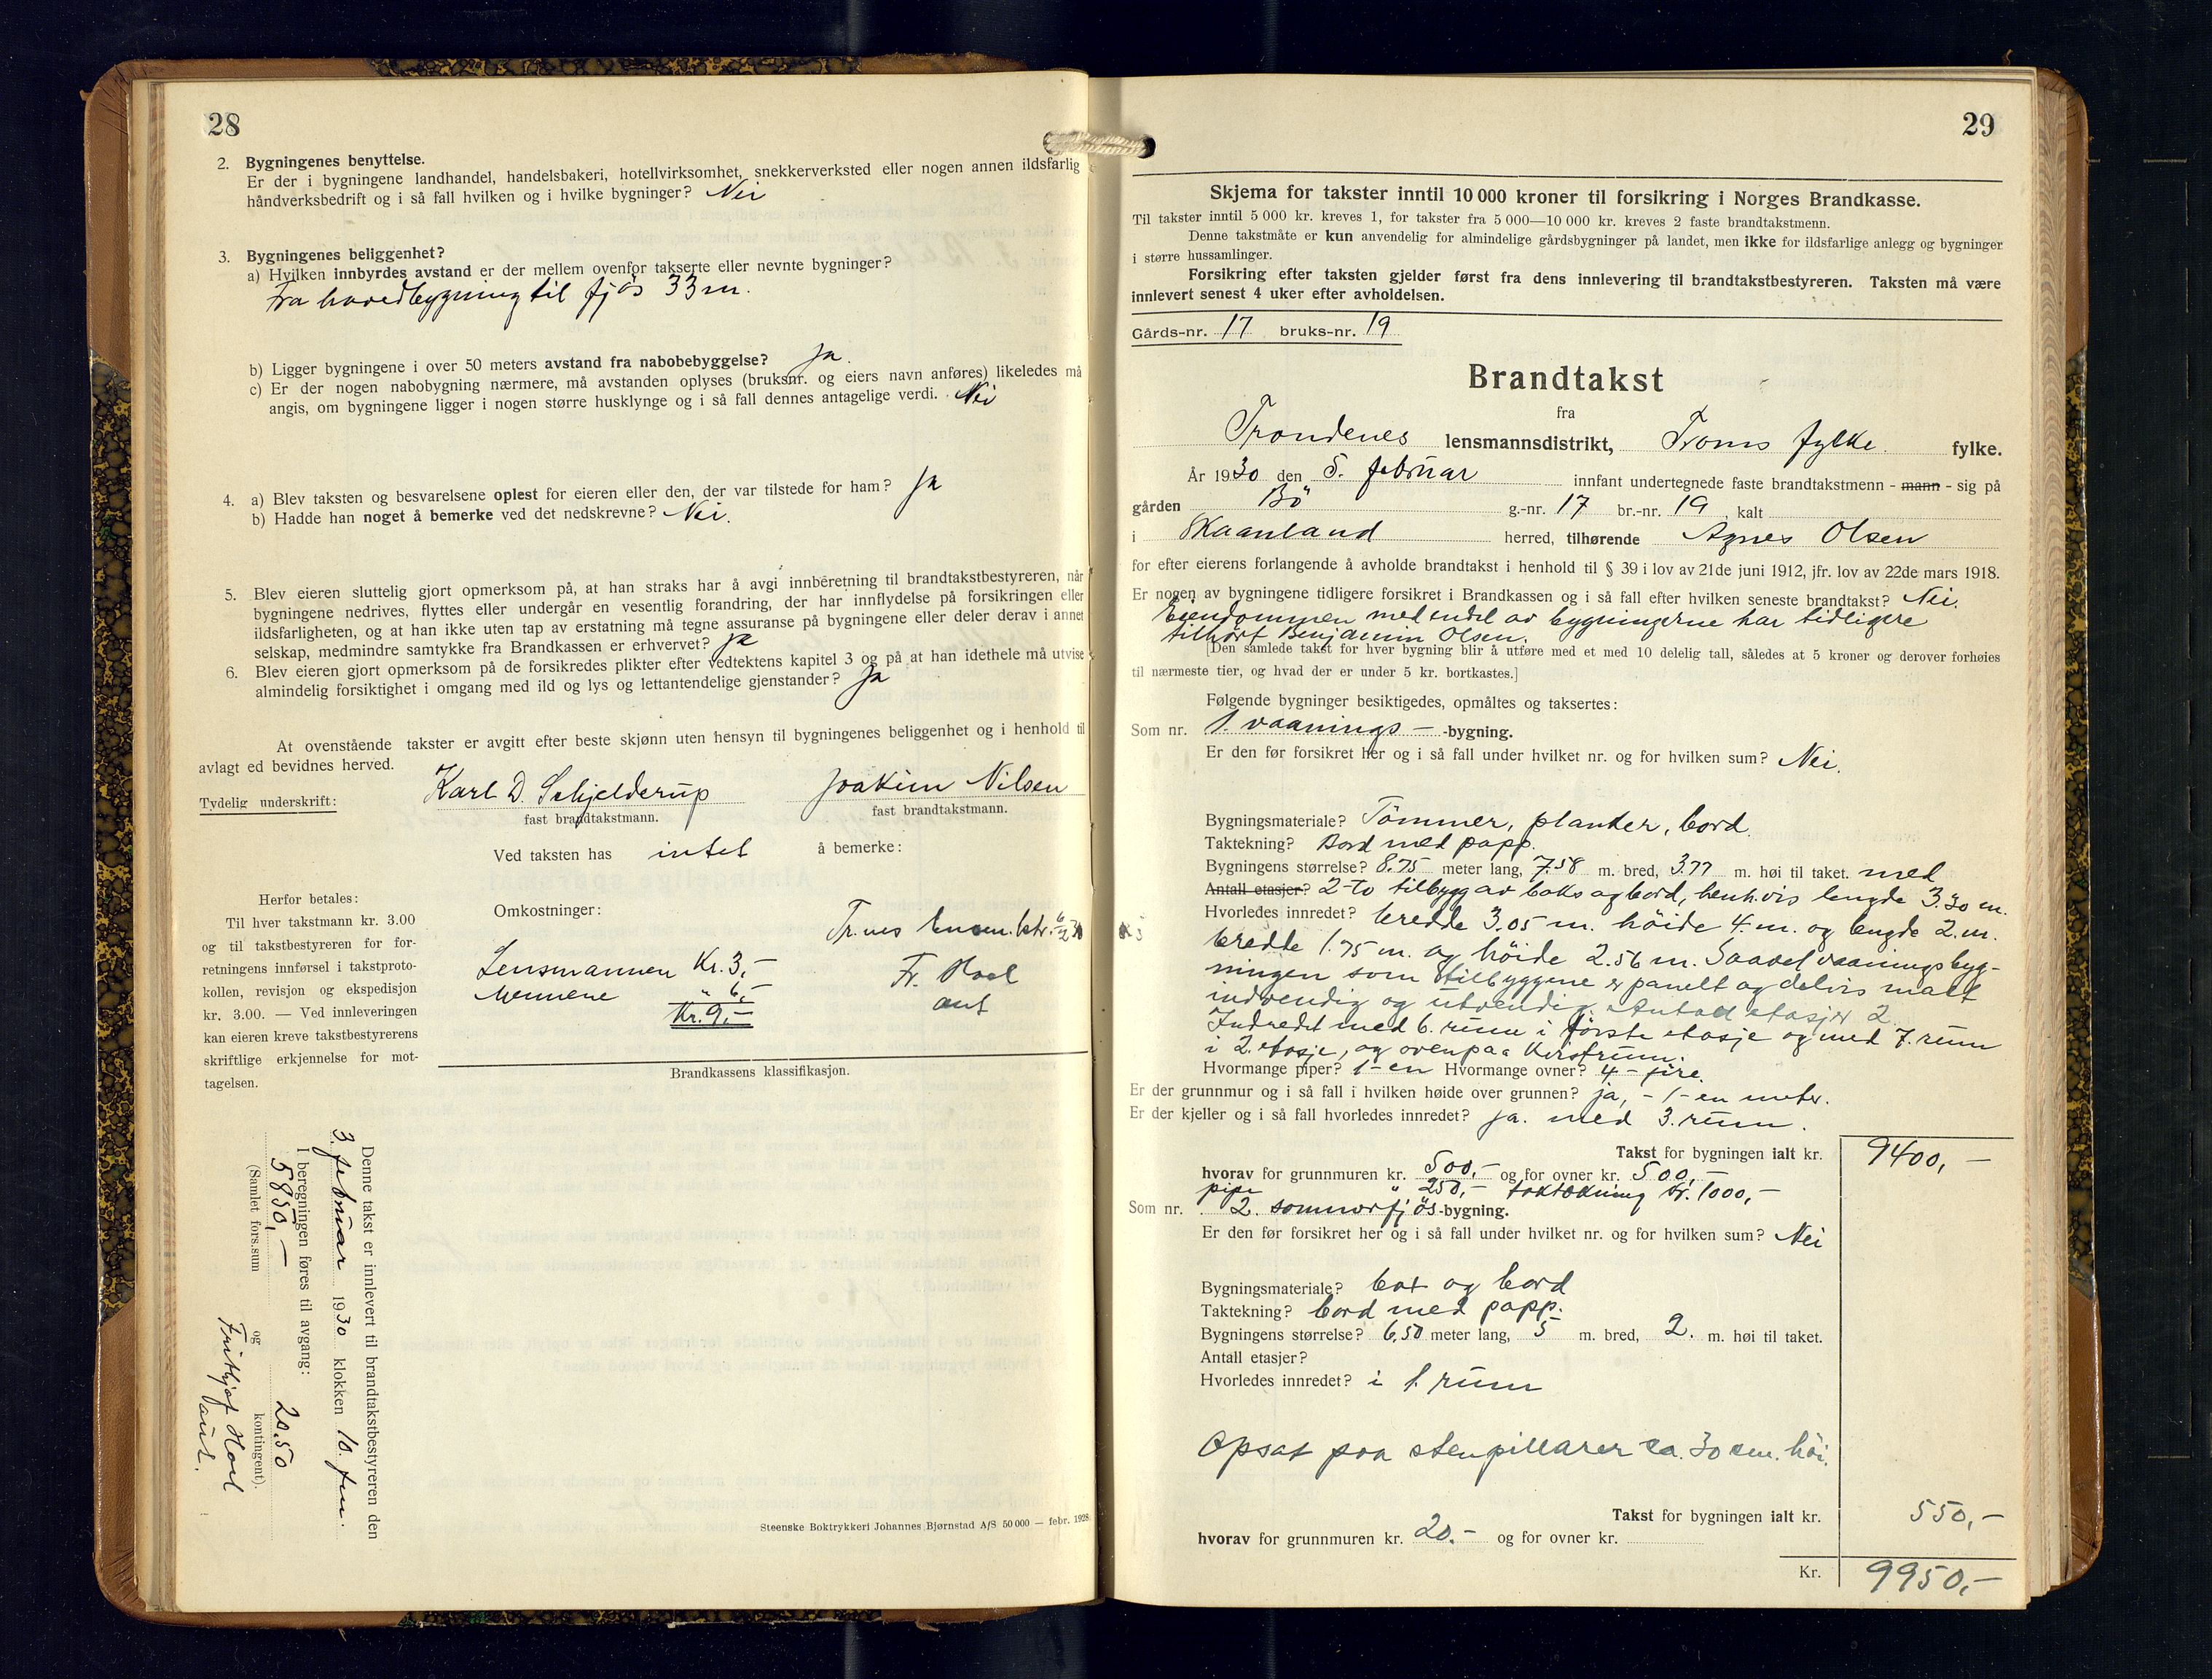 28
2. Bygningenes benyttelse.
Er der i bygningene landhandel, handelsbakeri, hotellvirksomhet, snekkerverksted eller nogen annen ildsfarlig
håndverksbedrift og i så fall hvilken og i hvilke bygninger? Nei
3. Bygningenes beliggenhet?
a) Hvilken innbyrdes avstand er der mellem ovenfor takserte eller nevnte bygninger?
Fra hovedbygning til fjøs 33 m.
b) Ligger bygningene i over 50 meters avstand fra nabobebyggelse? Ja.
c) Er der nogen nabobygning nærmere, må avstanden oplyses (bruksnr. og eiers navn anføres) likeledes må
angis, om bygningene ligger i nogen større husklynge og i så fall dennes antagelige verdi. Nei
4. a) Blev taksten og besvarelsene oplest for eieren eller den, der var tilstede for ham? Ja
b) Hadde han noget å bemerke ved det nedskrevne? Nei.
5. Blev eieren sluttelig gjort opmerksom på, at han straks har å avgi innberetning til brandtakstbestyreren, når
bygningene nedrives, flyttes eller undergår en vesentlig forandring, der har innflydelse på forsikringen eller
ildsfarligheten, og at han ikke uten tap av erstatning må tegne assuranse på bygningene eller deler derav i annet
selskap, medmindre samtykke fra Brandkassen er erhvervet? Ja
6. Blev eieren gjort opmerksom på de forsikredes plikter efter vedtektens kapitel 3 og på at han idethele må utvise
almindelig forsiktighet i omgang med ild og lys og lettantendelige gjenstander? Ja
At ovenstående takster er avgitt efter beste skjønn uten hensyn til bygningenes beliggenhet og i henhold til
avlagt ed bevidnes herved.
Tydelig underskrift: Karl D. Schjelderup Joakim Nilsen
fast brandtakstmann. fast brandtakstmann.
Ved taksten has intet å bemerke:
Herfor betales:
Til hver takstmann kr. 3.00
og til takstbestyreren for for-
retningens innførsel i takstproto-
kollen, revisjon og ekspedisjon
kr. 3.00. — Ved innleveringen
kan eieren kreve takstbestyrerens
skriftlige erkjennelse for mot-
tagelsen.
Omkostninger:
Lensmannen Kr. 3,-
Mennene " 6,-
Kr. 9,-
Tr.nes lensm.ktr. 6/2 30
Fr. Hoel
aut
Brandkassens klassifikasjon.
Denne takst er innlevert til brandtakstbestyreren den
3. februar 1930 klokken 10. fm.
I beregningen føres til avgang:
5850,- 20.50
(Samlet fors.sum og kontingent).
Frithjof Hoel
aut.
Steenske Boktrykkeri Johannes Bjørnstad A/S 50 000 — febr. 1928.
29
Skjema for takster inntil 10 000 kroner til forsikring i Norges Brandkasse.
Til takster inntil 5 000 kr. kreves 1, for takster fra 5 000—10 000 kr. kreves 2 faste brandtakstmenn.
Denne takstmåte er kun anvendelig for almindelige gårdsbygninger på landet, men ikke for ildsfarlige anlegg og bygninger
i større hussamlinger.
Forsikring efter taksten gjelder først fra dens innlevering til brandtakstbestyreren. Taksten må være
innlevert senest 4 uker efter avholdelsen.
Gårds-nr. 17 bruks-nr. 19
Brandtakst
fra
Trondenes lensmannsdistrikt, Troms fylke fylke.
År 1930 den 5. februar innfant undertegnede faste brandtakstmenn - mann - sig på
gården Bö g.-nr. 17 br.-nr. 19, kalt
i Skaanland herred, tilhørende Agnes Olsen
for efter eierens forlangende å avholde brandtakst i henhold til § 39 i lov av 21de juni 1912, jfr. lov av 22de mars 1918.
Er nogen av bygningene tidligere forsikret i Brandkassen og i så fall efter hvilken seneste brandtakst? Nei.
Eiendommen med endel av bygningerne har tidligere
tilhört Benjamin Olsen.
[Den samlede takst for hver bygning blir å utføre med et med 10 delelig tall, således at 5 kroner og derover forhøies
til nærmeste tier, og hvad der er under 5 kr. bortkastes.]
Følgende bygninger besiktigedes, opmåltes og taksertes:
Som nr. 1. vaanings- -bygning.
Er den før forsikret her og i så fall under hvilket nr. og for hvilken sum? Nei.
Bygningsmateriale? Tömmer, planker, bord.
Taktekning? Bord med papp.
Bygningens størrelse? 8.75 meter lang, 7.58 m. bred, 3.77 m. høi til taket. med
Antall etasjer? 2-to tilbygg av boks og bord, henh.vis lengde 3.30 m.
Hvorledes innredet? bredde 3.05 m. höide 4. m. og lengde 2. m.
bredde 1.75 m. og höide 2.56 m. Saavel vaaningsbyg-
ningen som tilbyggene er panelt og delvis malt
indvendig og utvendig. Antall etasjer 2.
Indredet med 6. rum i förste etasje og med 7. rum
i 2. etasje, og ovenpaa kvistrum.
Hvormange piper? 1-en Hvormange ovner? 4-fire.
Er der grunnmur og i så fall i hvilken høide over grunnen? ja, - 1-en meter.
Er der kjeller og i så fall hvorledes innredet? Ja. med 3. rum.
Takst for bygningen ialt kr. 9400,-
hvorav for grunnmuren kr. 500,- og for ovner kr. 500,-
pipe " 250,- taktækning kr. 1000,-
Som nr. 2. sommerfjös -bygning.
Er den før forsikret her og i så fall under hvilket nr. og for hvilken sum? Nei
Bygningsmateriale? box og bord
Taktekning? bord med papp.
Bygningens størrelse? 6,50 meter lang, 5 m. bred, 2. m. høi til taket.
Antall etasjer?
Hvorledes innredet? i 1. rum
Opsat paa stenpillarer ca. 30 cm. höi.
Takst for bygningen ialt kr. 550,-
hvorav for grunnmuren kr. 20.- og for ovner kr.
Kr. 9950,-